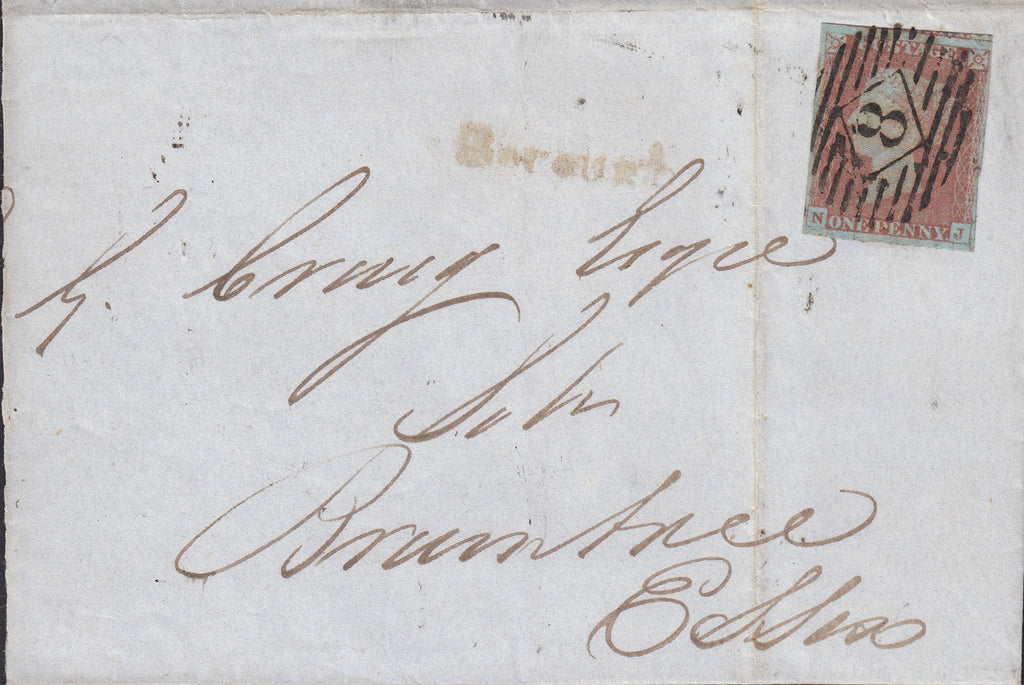 POSTAGE
8
N ONE PENNY J
Borough
Craig Esqre
Solr
Braintree
Essex